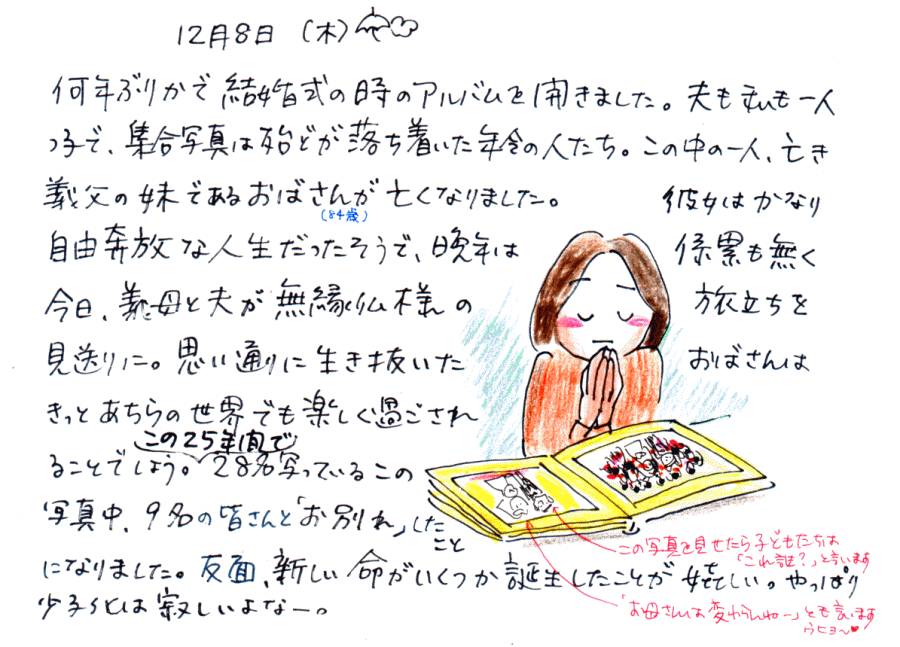 12月8日 (木)
何年ぶりかで結婚式の時のアルバムを開きました。夫も私も一人
っ子で、集合写真は殆どが落ち着いた年令の人たち。この中の一人、亡き
義父の妹であるおばさんが亡くなりました。 彼女はかなり
(84歳)
自由奔放な人生だったそうで、晩年は 係累も無く
今日、義母と夫が無縁仏様の 旅立ちを
見送りに。思い通りに生き抜いた おばさんは
きっとあちらの世界でも楽しく過ごされ
この25年間で
ることでしょう。28名写っているこの
写真中、9名の皆さんと「お別れ」した
こと
になりました。反面、新しい命がいくつか誕生したことが嬉しい。やっぱり
少子化は寂しいよなー。
この写真を見せたら子どもたちは
「これ誰?」と言います
「お母さんは変わらんねー」とも言います
ウヒョ〜♥